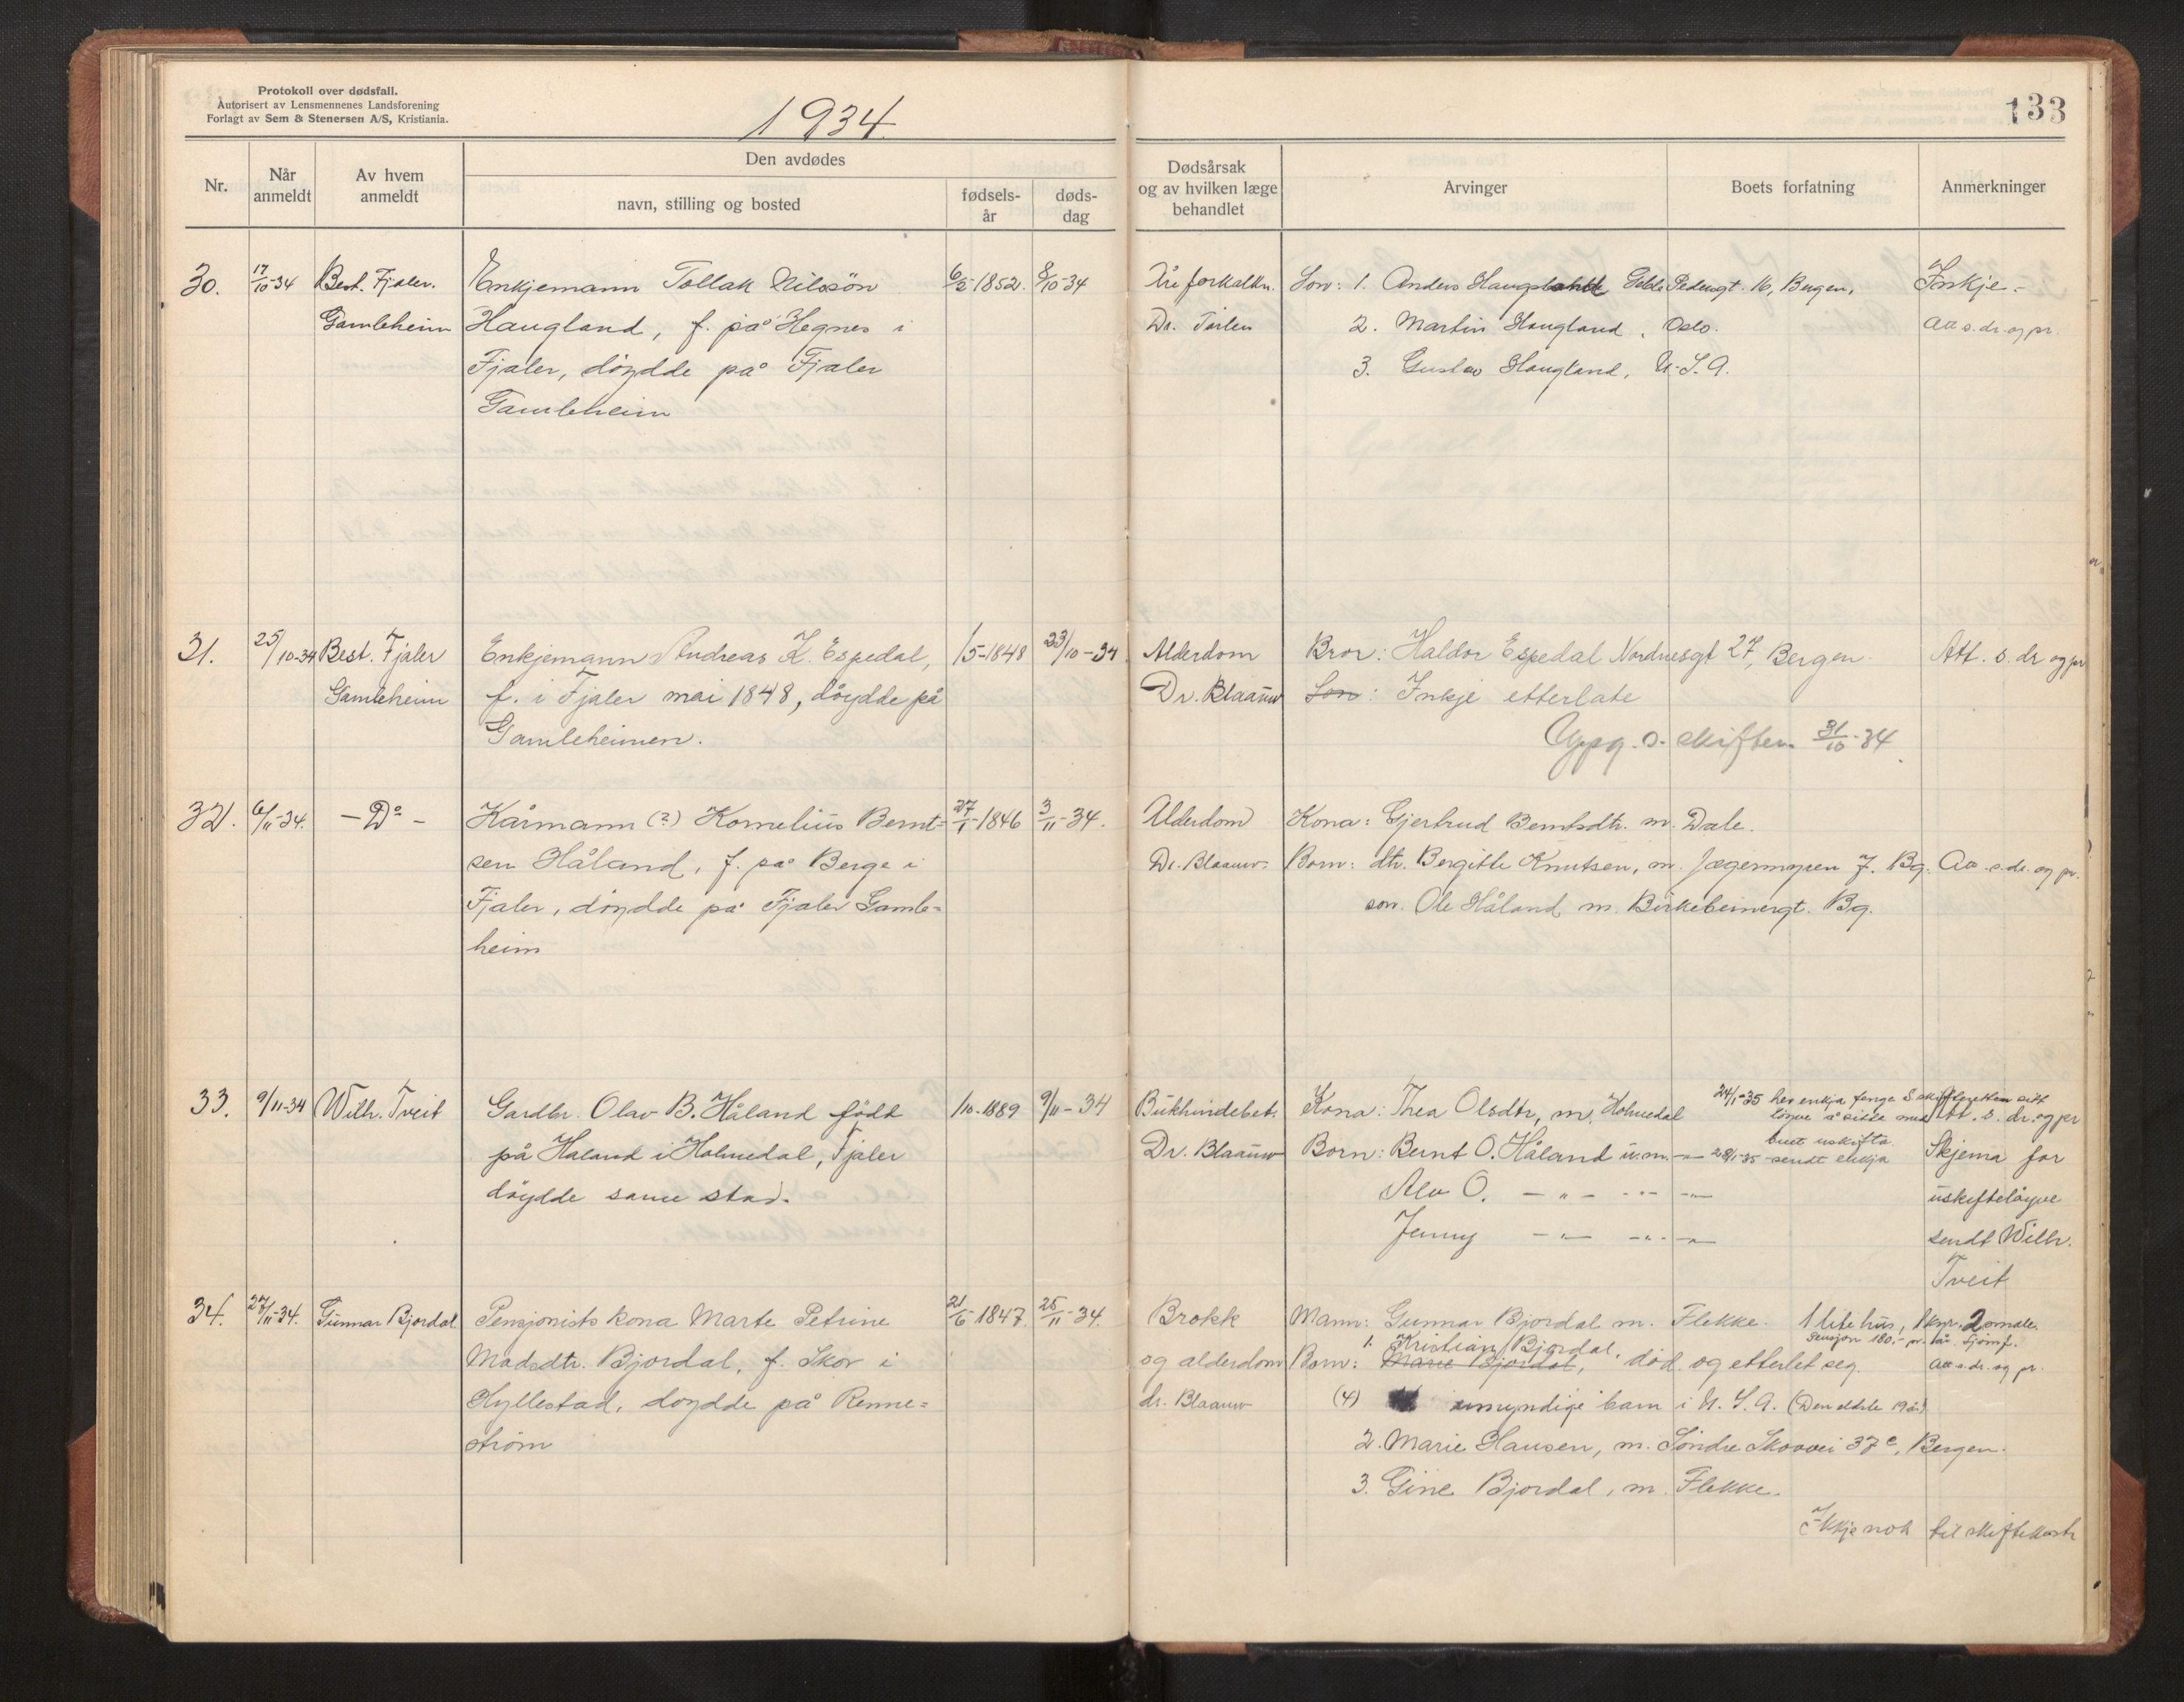 Protokoll over dødsfall.
Autorisert av Lensmennenes Landsforening
Forlagt av Sem & Stenersen A/S, Kristiania.
1934
133
Nr.
Når anmeldt
Av hvem anmeldt
Den avdødes
navn, stilling og bosted
fødsels-år
døds-dag
Dødsårsak og av hvilken læge behandlet
Arvinger
Boets forfatning
Anmerkninger
30. 17/10-34 Best. Fjaler Enkjemann Tollak Nilssön 6/5-1852. 8/10-34 Åreforkalkn. Son: 1. Anders Haugland Peders­gt. 16, Bergen, Inkje -
Gamleheim Haugland, f. på Hegnes i Dr. 2. Martin Haugland, Oslo. Att s. dr. og pr.
Fjaler, döydde på Fjaler 3. Gustav Haugland, U.S.A.
Gamleheim
31. 25/10-34 Best. Fjaler Enkjemann Andreas K. Espedal, /5-1848 23/10-34 Alderdom Bror: Haldor Espedal Nordnesgt 27, Bergen Att. s. dr og pr
Gamleheim f. i Fjaler mai 1848, döydde på Dr. Blaauw Son: Inkje etterlate
Gamleheimen. Oppg. s. skifter. 31/10-34
32. 6/11-34. - Do - Kårmann (?) Kornelius Bernt- 27/1-1846 3/11-34. Alderdom Kona: Gjertrud Berntsdtr. m. Dale.
sen Håland, f. på Berge i Dr. Blaauw. Born: dtr. Bergitte Knutsen, m. Jægermyren 7. Bg. Att s. dr. og pr.
Fjaler, döydde på Fjaler Gamle- son. Ole Håland m. Birkebeinergt. Bg.
heim
33. 9/11-34 Wilh. Tveit Gardbr. Olav B. Håland födt /10-1889 9/11-34 Bukhindebet. Kona: Thea Olsdtr, m. Holmedal 24/1-35 hev enkja fenge Skifteretten sitt
löyve å sitte med Att. s. dr. og pr
buet uskifta
på Håland i Holmedal, Fjaler Dr. Blaauw Born: Bernt O. Håland u.m. -"- 28/1-35 sendt enkja Skjema for
döydde same stad. Alv O. -"- -"- -"- uskiftelöyve
Jenny -"- -"- -"- sendt Wilh.
Tveit
34. 27/11-34. Gunnar Bjordal Pensjonists kona Marte Petrine 21/6-1847. 25/11-34. Brokk Mann: Gunnar Bjordal m. Flekke. 1 lite hus, 1 kyr. 2 smale.
1. Kristian Bjordal. pensjon 180,- pr. år.
Madsdtr. Bjordal, f. Skor i og alderdom Born: Marie Bjordal, död og etterlet seg Att s. dr. og pr.
Hyllestad, döydde på Renne- dr. Blaauw (4) umyndige barn i U.S.A. (Den eldste 19 år)
ström 2. Marie Hansen, m. Söndre Skovvei 37c, Bergen.
3. Gine Bjordal, m. Flekke.
Ikkje nok til skiftekostn